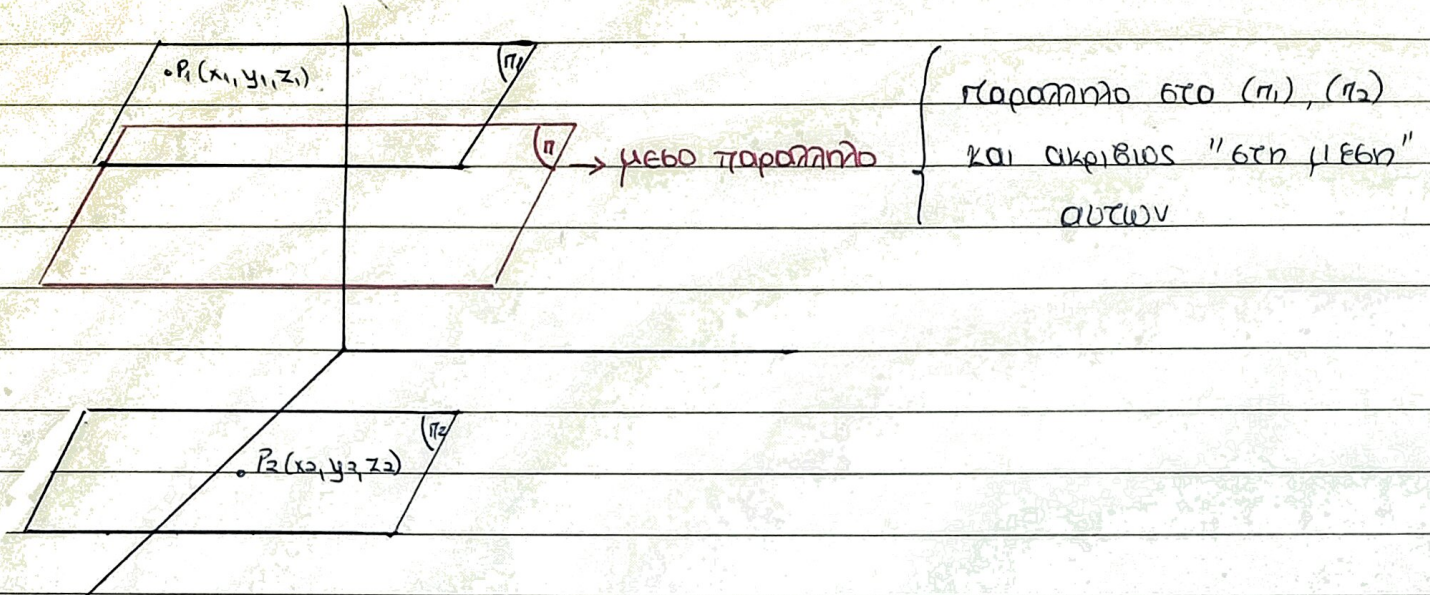 P₁(x₁,y₁,z₁)
(π₁)
(π)
→ μεσο παραλληλο
παραλληλο στο (π₁), (π₂)
και ακριβιος "στη μεση"
αυτων
(π₂)
P₂(x₂,y₂,z₂)